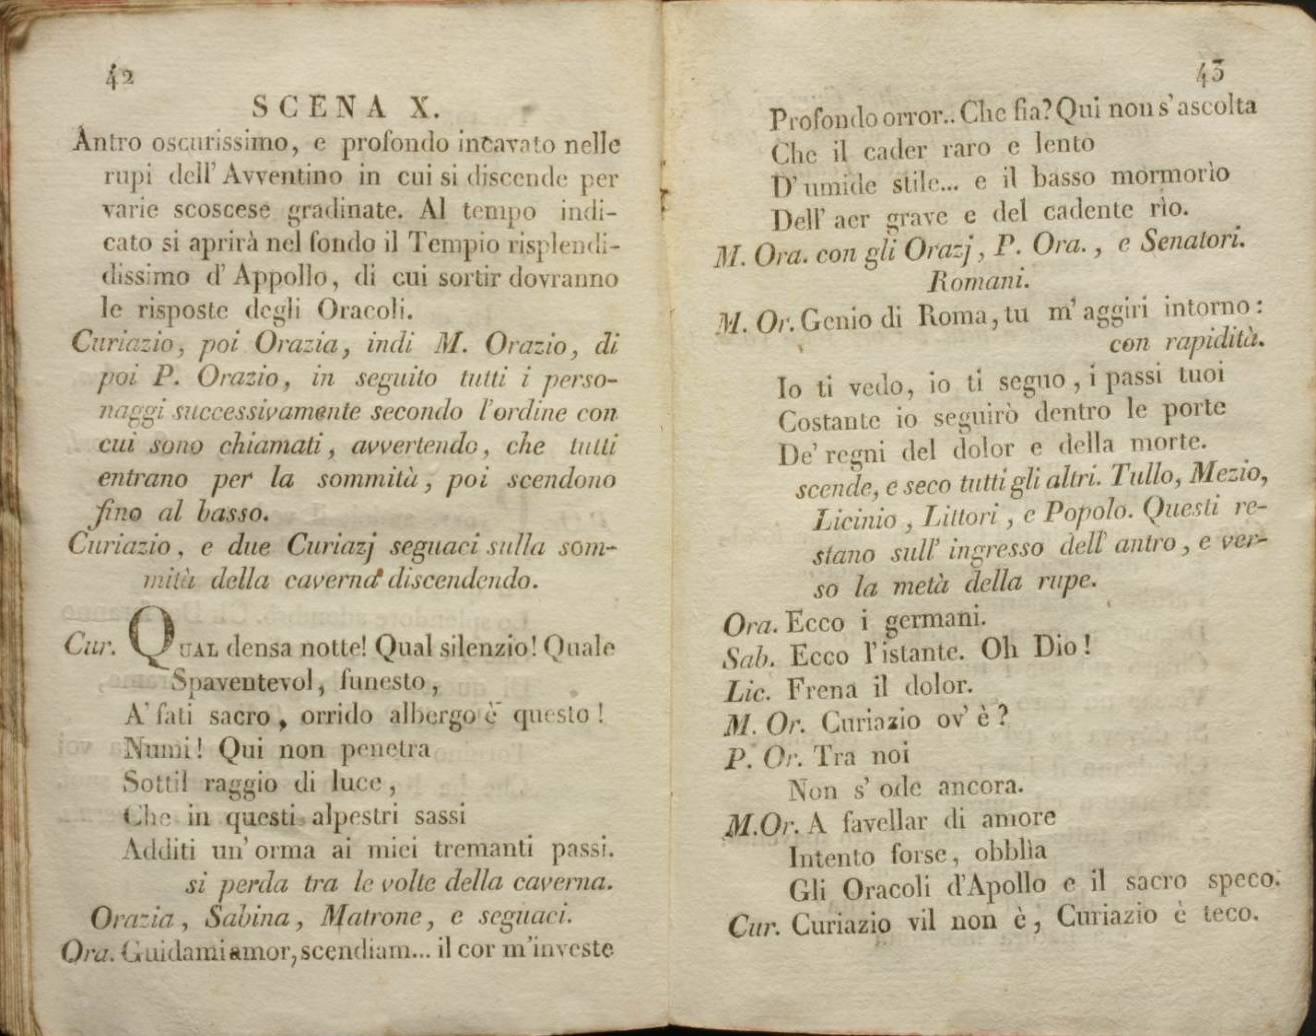 42
SCENA X.
Antro oscurissimo, e profondo incavato nelle
rupi dell' Avventino in cui si discende per
varie scoscese gradinate. Al tempo indi-
cato si aprirà nel fondo il Tempio risplendi-
dissimo d' Appollo, di cui sortir dovranno
le risposte degli Oracoli.
Curiazio, poi Orazia, indi M. Orazio, di
poi P. Orazio, in seguito tutti i perso-
naggi successivamente secondo l'ordine con
cui sono chiamati, avvertendo, che tutti
entrano per la sommità, poi scendono
fino al basso.
Curiazio, e due Curiazj seguaci sulla som-
mità della caverna discendendo.
Cur. QUAL densa notte! Qual silenzio! Quale
Spaventevol, funesto,
A' fati sacro, orrido albergo è questo!
Numi! Qui non penetra
Sottil raggio di luce,
Che in questi alpestri sassi
Additi un' orma ai miei tremanti passi.
si perda tra le volte della caverna.
Orazia, Sabina, Matrone, e seguaci.
Ora. Guidami amor, scendiam... il cor m'investe
43
Profondo orror.. Che fia? Qui non s' ascolta
Che il cader raro e lento
D' umide stile... e il basso mormorìo
Dell' aer grave e del cadente rìo.
M. Ora. con gli Orazj, P. Ora., e Senatori.
Romani.
M. Or. Genio di Roma, tu m' aggiri intorno:
con rapidità.
Io ti vedo, io ti seguo, i passi tuoi
Costante io seguirò dentro le porte
De' regni del dolor e della morte.
scende, e seco tutti gli altri. Tullo, Mezio,
Licinio, Littori, e Popolo. Questi re-
stano sull' ingresso dell' antro, e ver-
so la metà della rupe.
Ora. Ecco i germani.
Sab. Ecco l'istante. Oh Dio!
Lic. Frena il dolor.
M. Or. Curiazio ov' è?
P. Or. Tra noi
Non s' ode ancora.
M.Or. A favellar di amore
Intento forse, obblìa
Gli Oracoli d'Apollo e il sacro speco.
Cur. Curiazio vil non è, Curiazio è teco.